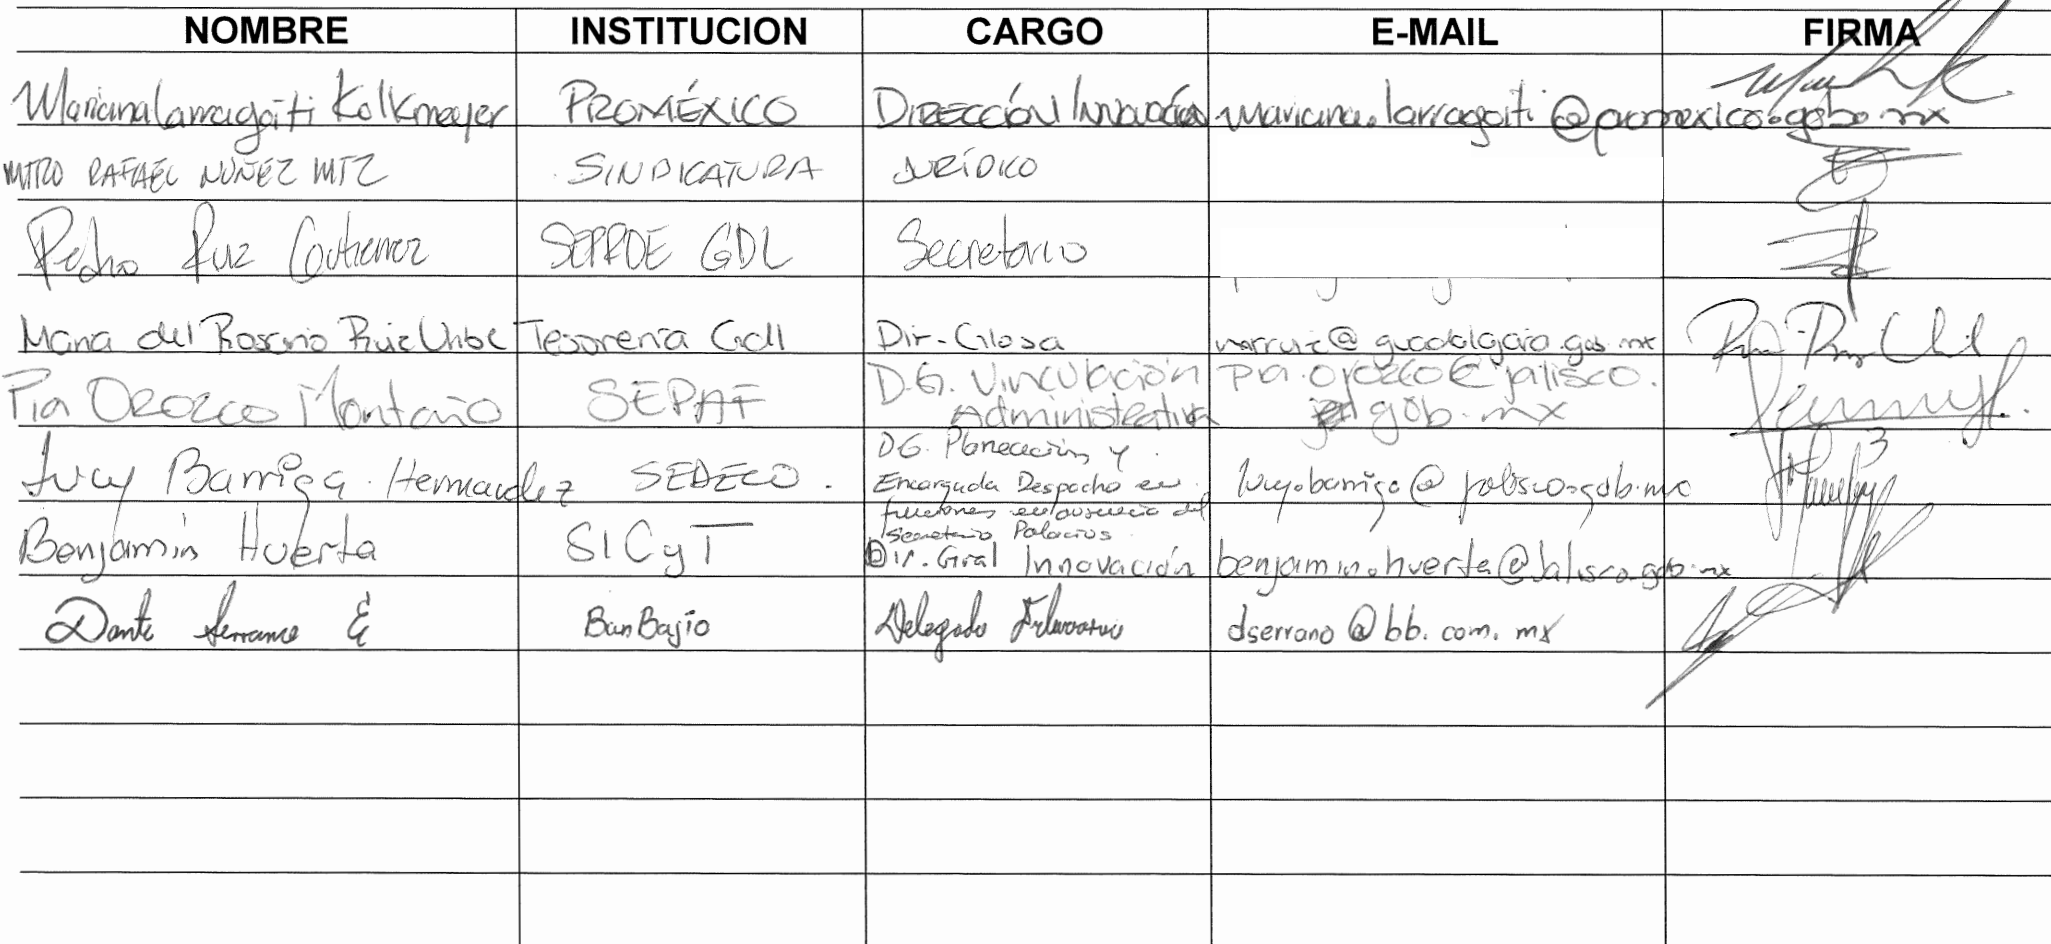 NOMBRE INSTITUCION CARGO E-MAIL FIRMA
Mariana Larragoiti Kolkmeyer PROMÉXICO DIRECCIÓN Innovación mariana.larragoiti@promexico.gob.mx
MTRO RAFAEL NUÑEZ MTZ SINDICATURA JURÍDICO
Pedro Ruiz Gutierrez SEPROE GDL Secretario
Maria del Rosario Ruiz Uribe Tesorería Gdl Dir-Glosa marruiz@guadalajara.gob.mx
Pia Orozco Montaño SEPAF D.G. Vinculación pia.orozco@jalisco.
Administrativa gob.mx
Lucy Barriga Hernandez SEDECO. DG. Planeación y lucy.barriga@jalisco.gob.mx
Encargada Despacho en
funciones en ausencia del
Secretario Palacios
Benjamín Huerta SICyT Dir. Gral Innovación benjamin.huerta@jalisco.gob.mx
Dante Serrano E BanBajío Delegado dserrano@bb.com.mx